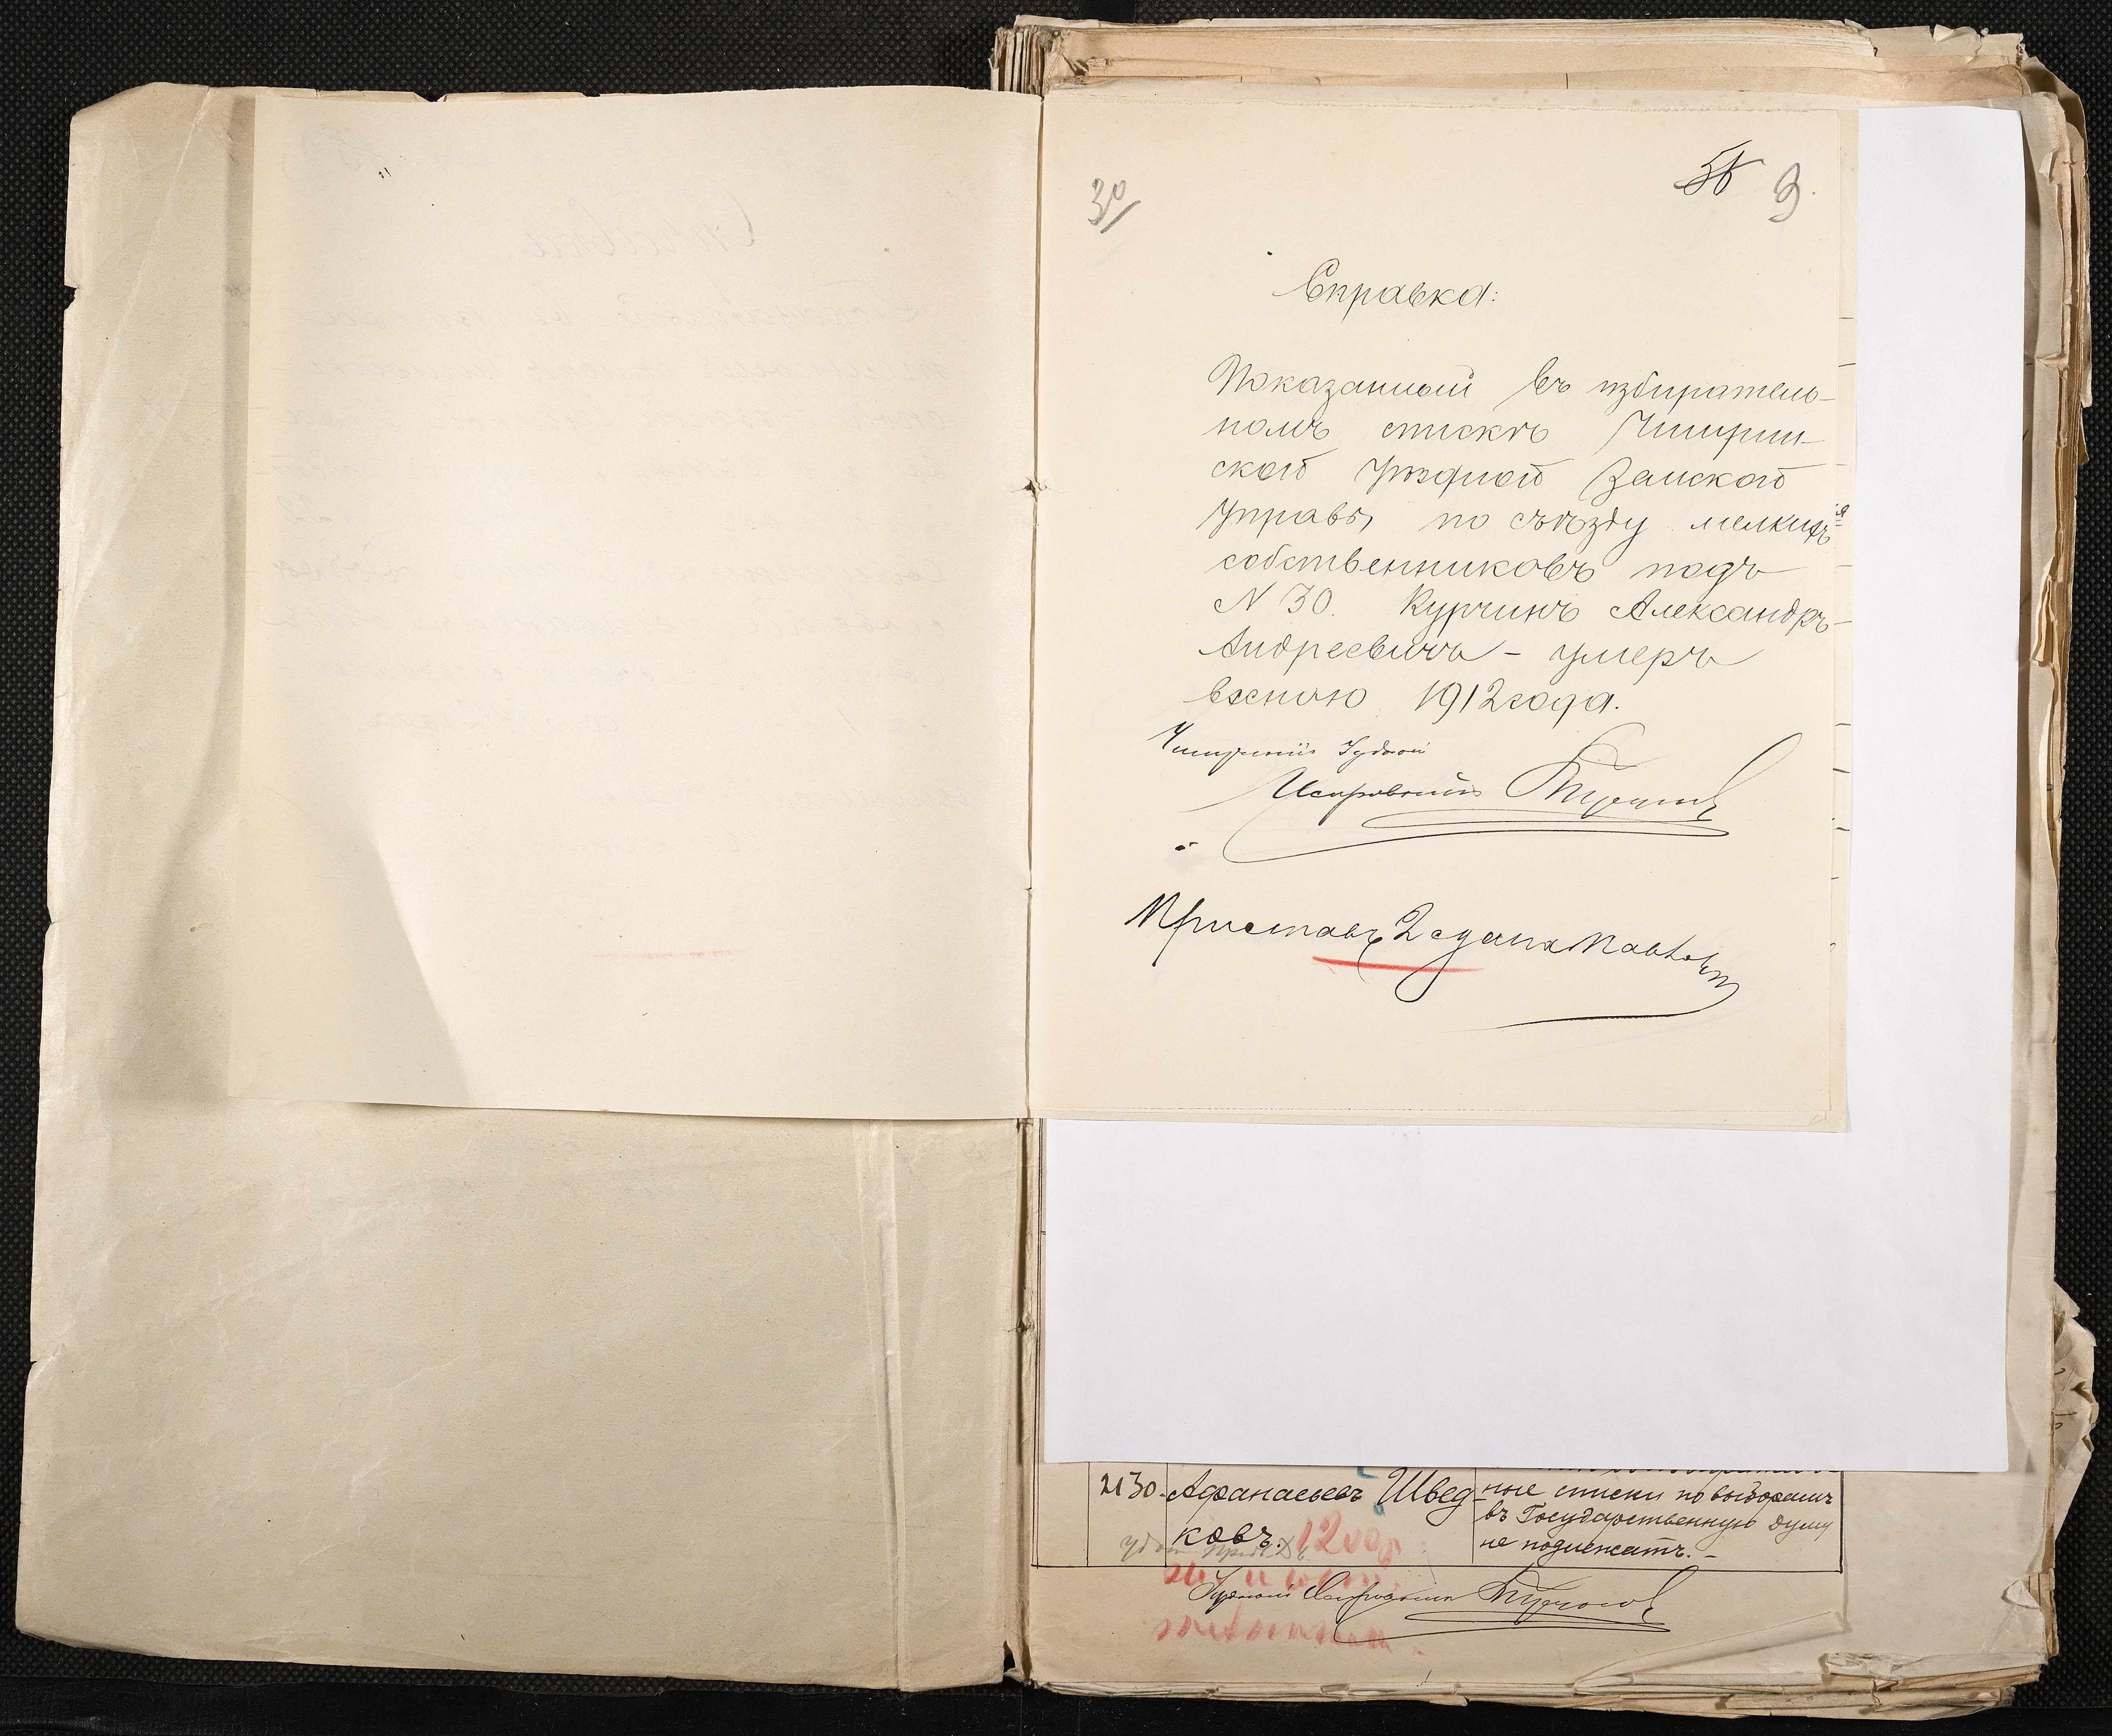 30/
9.
Справка:
Показанный въ избиратель-
номъ спискѣ Чигирин-
ской Уѣздной Земской
Управы, по съѣзду мелкихъ
собственниковъ подъ
N 30. Курчинъ Александръ
Андреевичъ – умеръ
весною 1912 года.
Чигиринскій Уѣздный
Исправникъ
Приставъ 2 стана
2130. Афанасьевъ Швед-
ковъ.
ные списки по выборамъ
въ Государственную Думу
не подлежатъ. –
Уѣздный Исправникъ